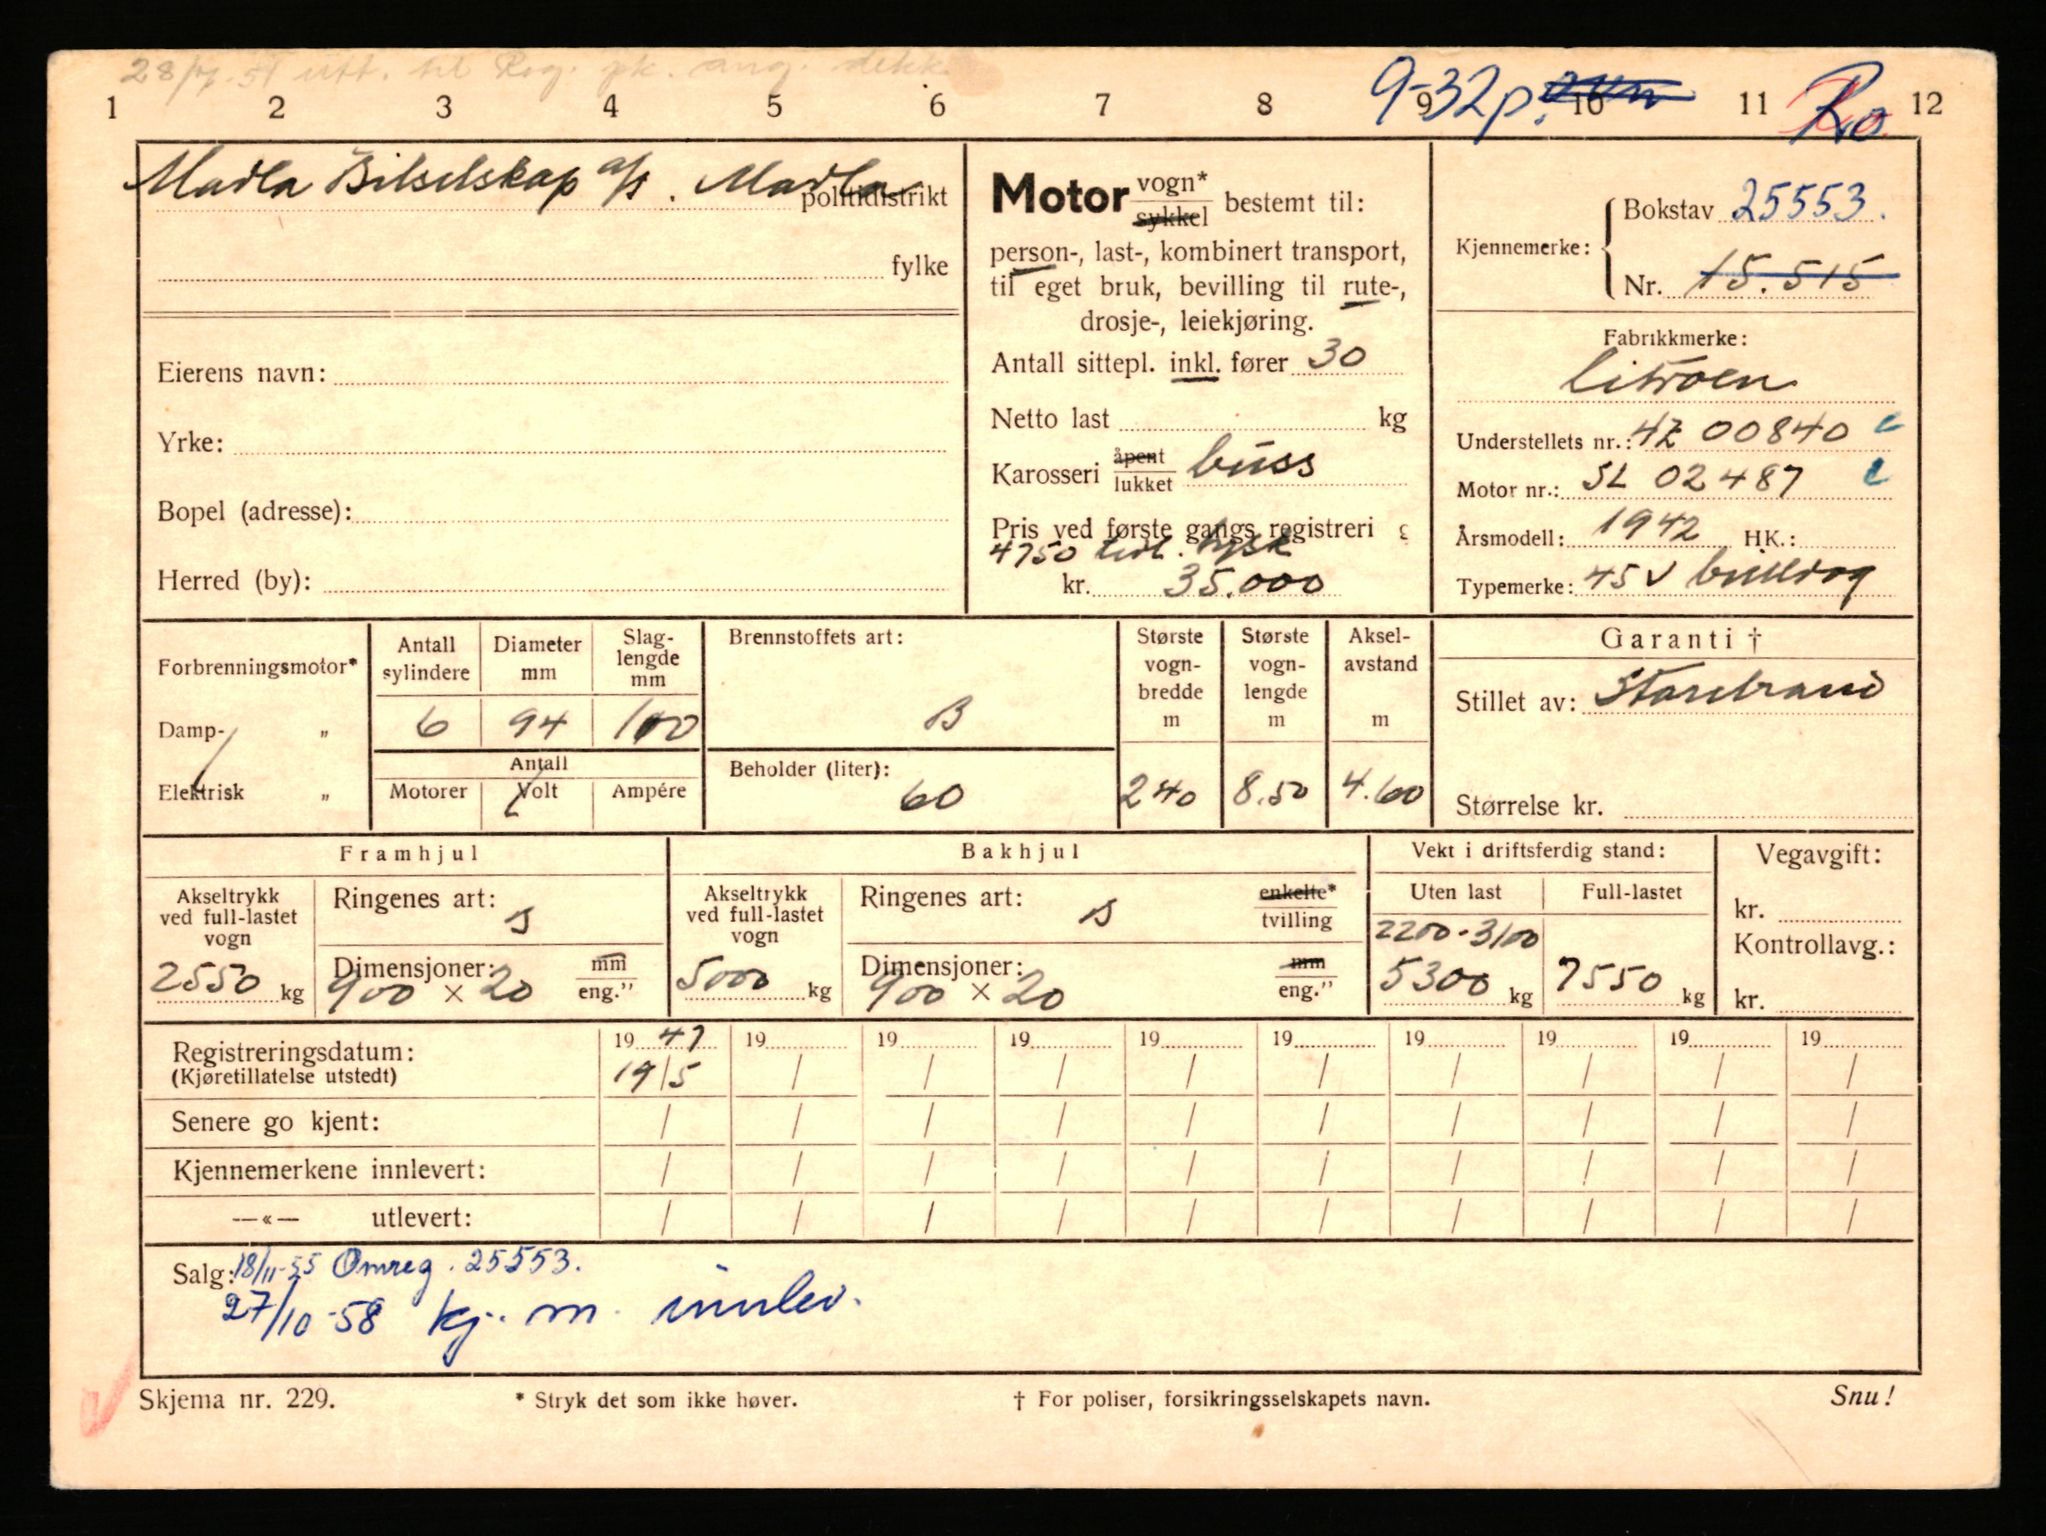 28/ . 51 utt. til Reg. pk. ang. dekk.
1 2 3 4 5 6 7 8 9 10 11 12
9-32 p. Ro
Madla Bilselskap a/s . Madla
politidistrikt
fylke
Eierens navn:
Yrke:
Bopel (adresse):
Herred (by):
Motor vogn* sykkel bestemt til:
person-, last-, kombinert transport,
til eget bruk, bevilling til rute-,
drosje-, leiekjøring.
Antall sittepl. inkl. fører 30
Netto last kg
Karosseri åpent lukket buss
Pris ved første gangs registreri g
4750 tidl. tysk
kr. 35.000
Kjennemerke: Bokstav 25553.
Nr. 15.515
Fabrikkmerke:
Citroen
Understellets nr.: 4Z 00840 c
Motor nr.: SL 02487 c
Årsmodell: 1942 HK.:
Typemerke: 45 V bulldog
Forbrenningsmotor*
Damp- „
Elektrisk „
Antall sylindere 6
Diameter mm 94
Slag-lengde mm 100
Antall
Motorer Volt Ampére
Brennstoffets art:
B
Beholder (liter):
60
Største vogn-bredde m 240
Største vogn-lengde m 8.50
Aksel-avstand m 4.60
Garanti †
Stillet av: Storebrand
Størrelse kr.
Framhjul
Akseltrykk ved full-lastet vogn
2550 kg
Ringenes art: B
Dimensjoner: mm eng."
900 × 20
Bakhjul
Akseltrykk ved full-lastet vogn
5000 kg
Ringenes art: B enkelte* tvilling
Dimensjoner: mm eng."
900 × 20
Vekt i driftsferdig stand:
Uten last Full-lastet
2200-3100
5300 kg 7550 kg
Vegavgift:
kr.
Kontrollavg.:
kr.
Registreringsdatum: 19 47 19 19 19 19 19 19 19 19 19
(Kjøretillatelse utstedt) 19/5 / / / / / / / / /
Senere go kjent: / / / / / / / / / /
Kjennemerkene innlevert: / / / / / / / / / /
—«— utlevert: / / / / / / / / / /
Salg: 18/11-55 Omreg. 25553.
27/10-58 kj. m. innlev.
Skjema nr. 229.
* Stryk det som ikke høver.
† For poliser, forsikringsselskapets navn.
Snu!